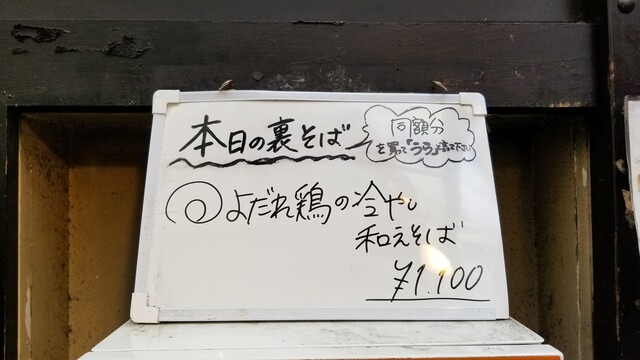 本日の裏そば
同額分
を買って「うら」と言て下さい
よだれ鶏の冷やし
和えそば
¥1.100